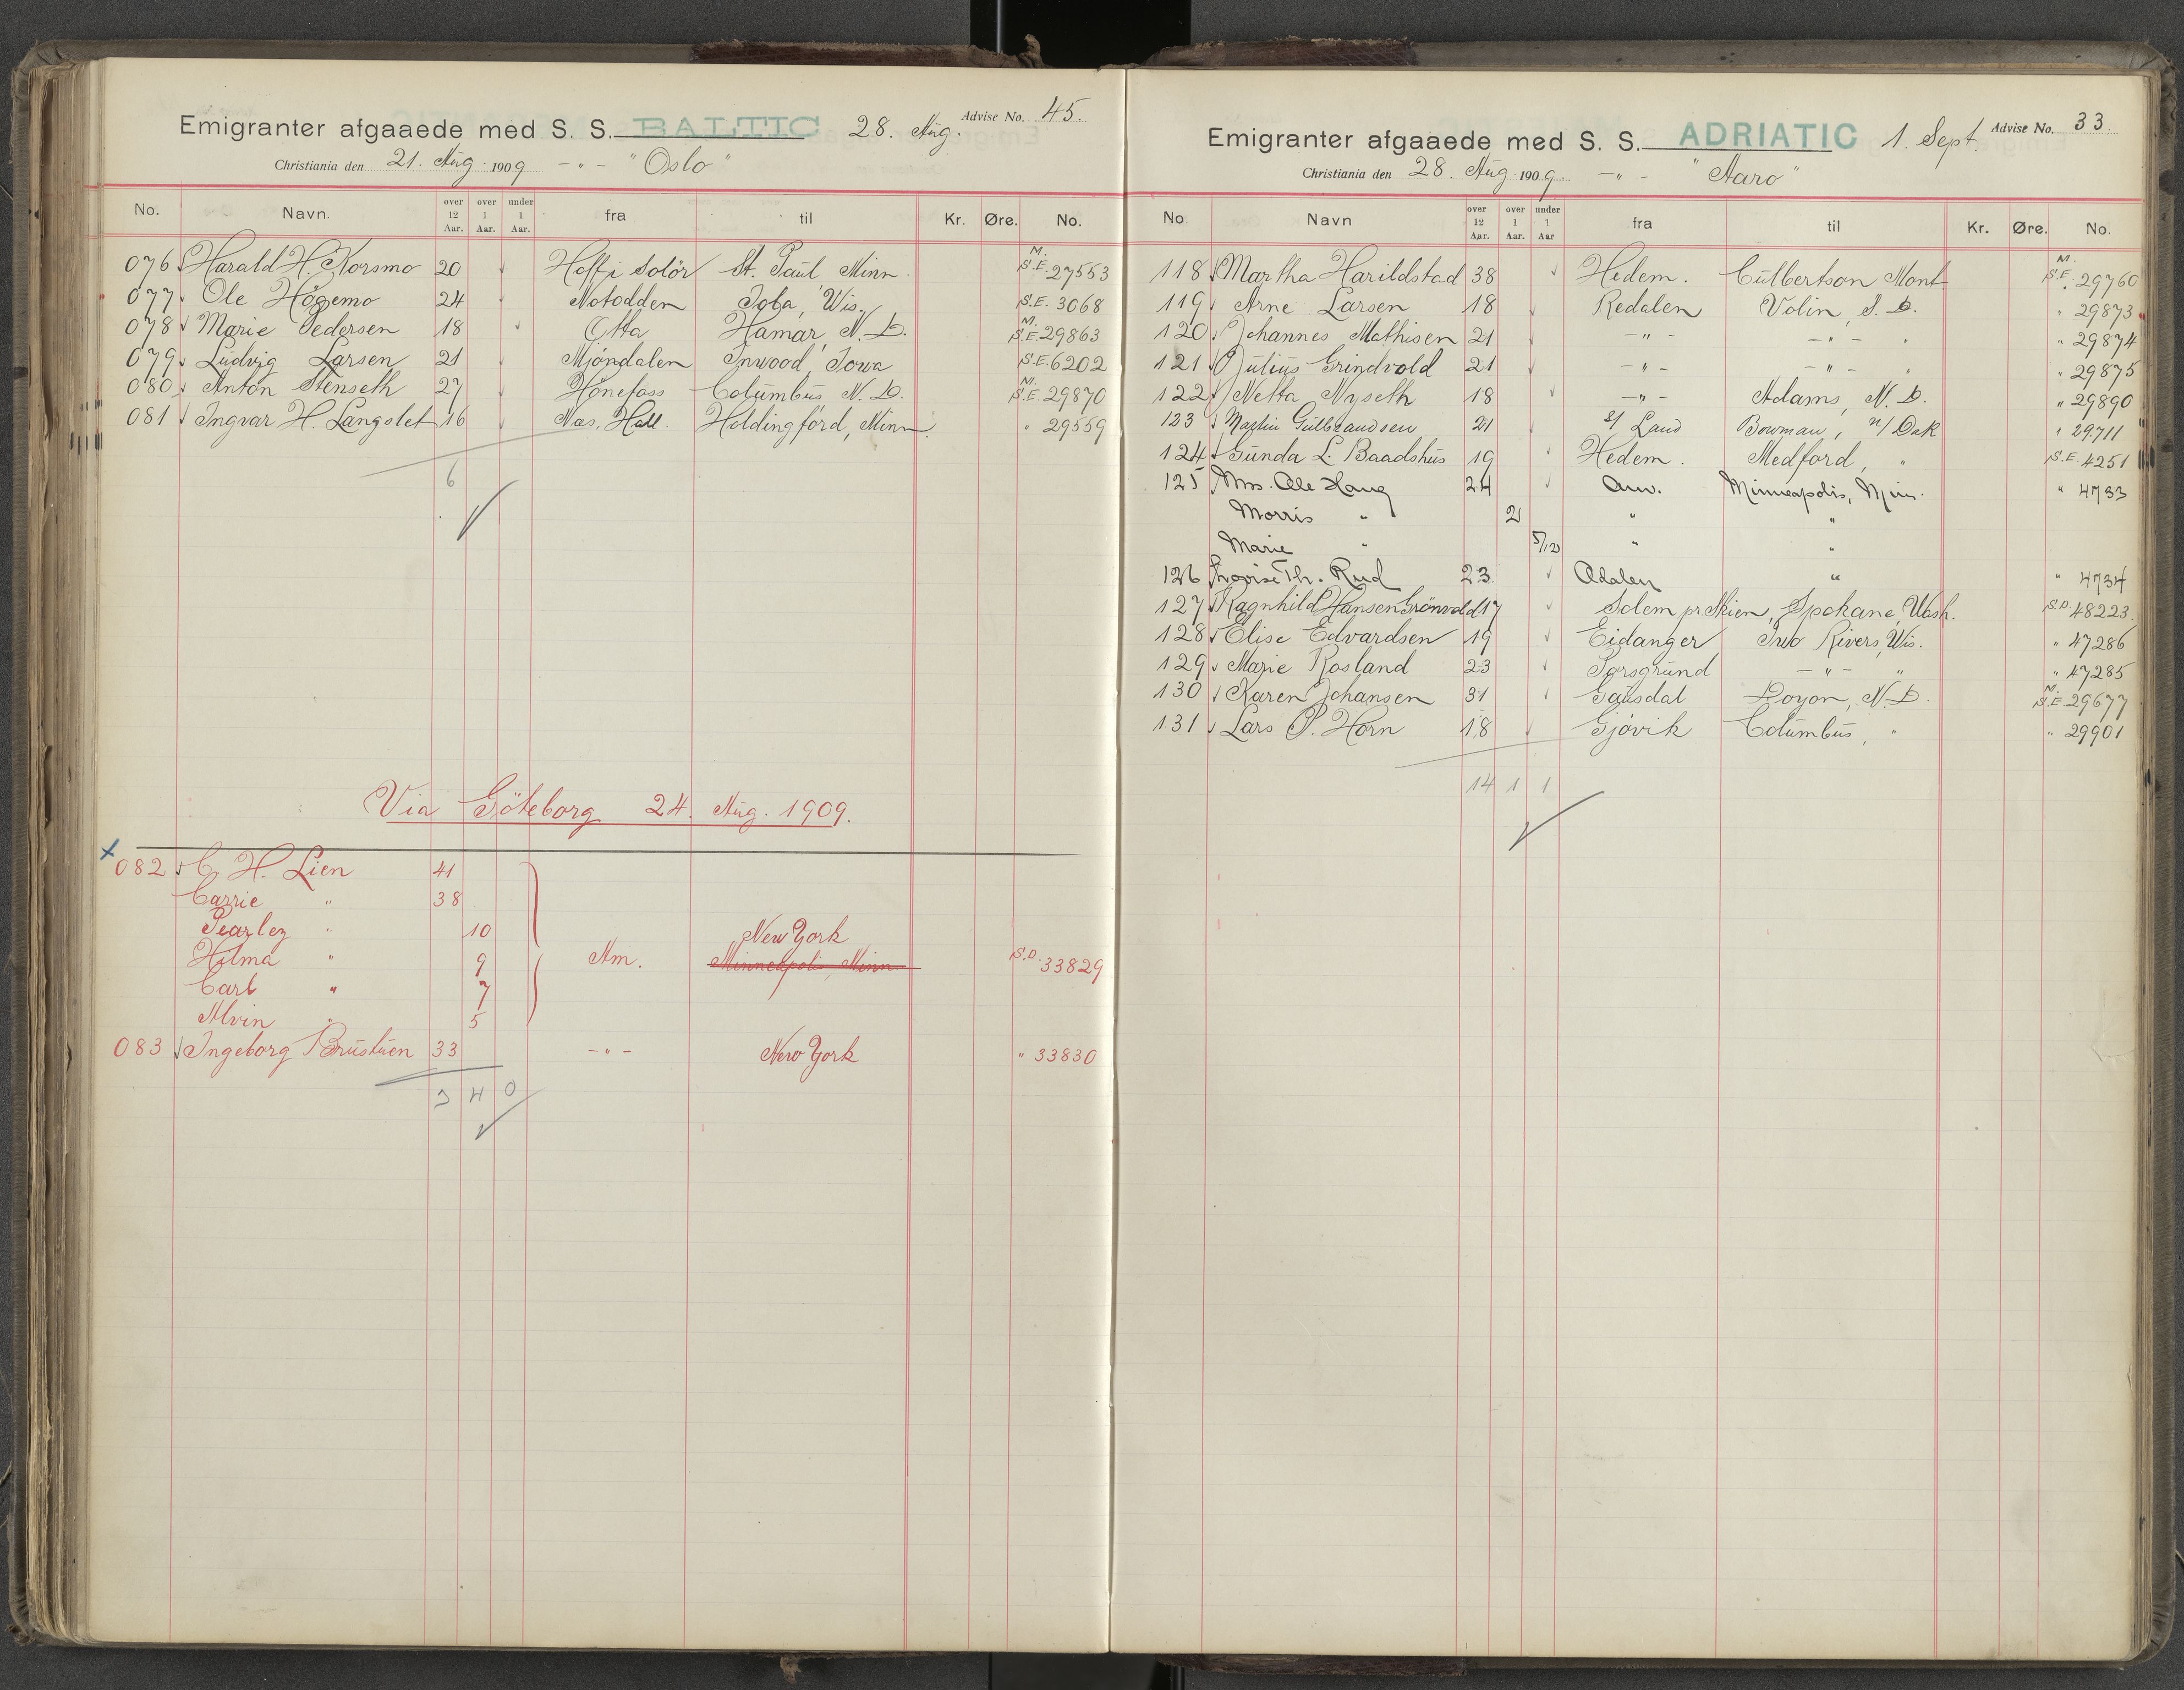 Emigranter afgaaede med S. S. BALTIC 28. Aug. Advise No. 45.
Christiania den 21. Aug. 1909 -"- "Oslo"
No. Navn. over 12 Aar. over 1 Aar. under 1 Aar. fra til Kr. Øre. No.
076 Harald H. Korsmo 20 Hoff i Solör St. Paul Minn. M. S.E. 27553
077 Ole Högemo 24 Notodden Iola, Wis. S.E. 3068
078 Marie Pedersen 18 Otta Hamar, N. D. M. S.E. 29863
079 Ludvig Larsen 21 Mjøndalen Inwood, Iowa S.E. 6202
080 Anton Stenseth 27 Hönefoss Columbus N. D. M. S.E. 29870
081 Ingvar H. Langslet 16 Nes, Hall. Holdingford, Minn. " 29559
6
Via Göteborg 24. Aug. 1909.
082 C. H. Lien 41
Carrie " 38
Pearley " 10
New York
Hilma " 9 Am. Minneapolis, Minn S.D. 33829
Carl " 7
Alvin " 5
083 Ingeborg Brustuen 33 -"- New York " 33830
3 4 0
Emigranter afgaaede med S. S. ADRIATIC 1. Sept. Advise No. 33.
Christiania den 28. Aug. 1909. -"- "Aaro"
No. Navn over 12 Aar. over 1 Aar. under 1 Aar fra til Kr. Øre. No.
118 Martha Harildstad 38 Hedem. Culbertson Mont M. S.E. 29760
119 Arne Larsen 18 Redalen Volin, S. D. " 29873
120 Johannes Mathisen 21 -"- -"- " " 29874
121 Julius Grindvold 21 -"- -"- " " 29875
122 Netta Nyseth 18 -"- Adams, N. D. " 29890
123 Martin Gulbrandsen 21 S/ Land Bowman, n/ Dak " 29711
124 Gunda L. Baadshus 19 Hedem. Medford, " S.E. 4251
125 Mrs. Ole Haug 24 Am. Minneapolis, Minn. " 4733
Morris " 2 " "
Marie " 5/12 " "
126 Lovise Th. Rud 23 Adalen " " 4734
127 Ragnhild Hansen Grönvold 17 Solem pr Skien, Spokane, Wash. S.D. 48223.
128 Elise Edvardsen 19 Eidanger Two Rivers, Wis. " 47286
129 Marie Rosland 23 Porsgrund -"- " " 47285
130 Karen Johansen 31 Gausdal Loyon, N. D. M. S.E. 29677
131 Lars P. Horn 18 Gjövik Columbus, " " 29901
14 1 1